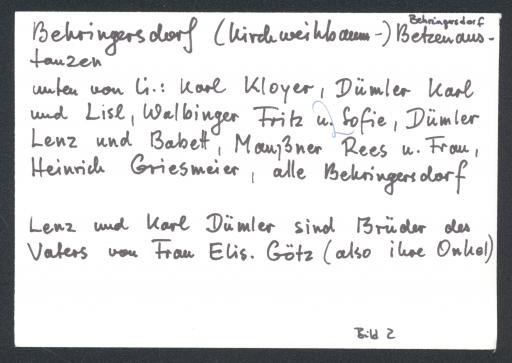 Behringersdorf
Behringersdorf (Kirchweihbaum-) Betzenaus-
tanzen
unten von li.: Karl Kloyer, Dümler Karl
und Lisl, Walbinger Fritz u. Sofie, Dümler
Lenz und Babett, Maußner Rees u. Frau,
Heinrich Griesmeier, alle Behringersdorf
Lenz und Karl Dümler sind Brüder des
Vaters von Frau Elis. Götz (also ihre Onkel)
Bild 2